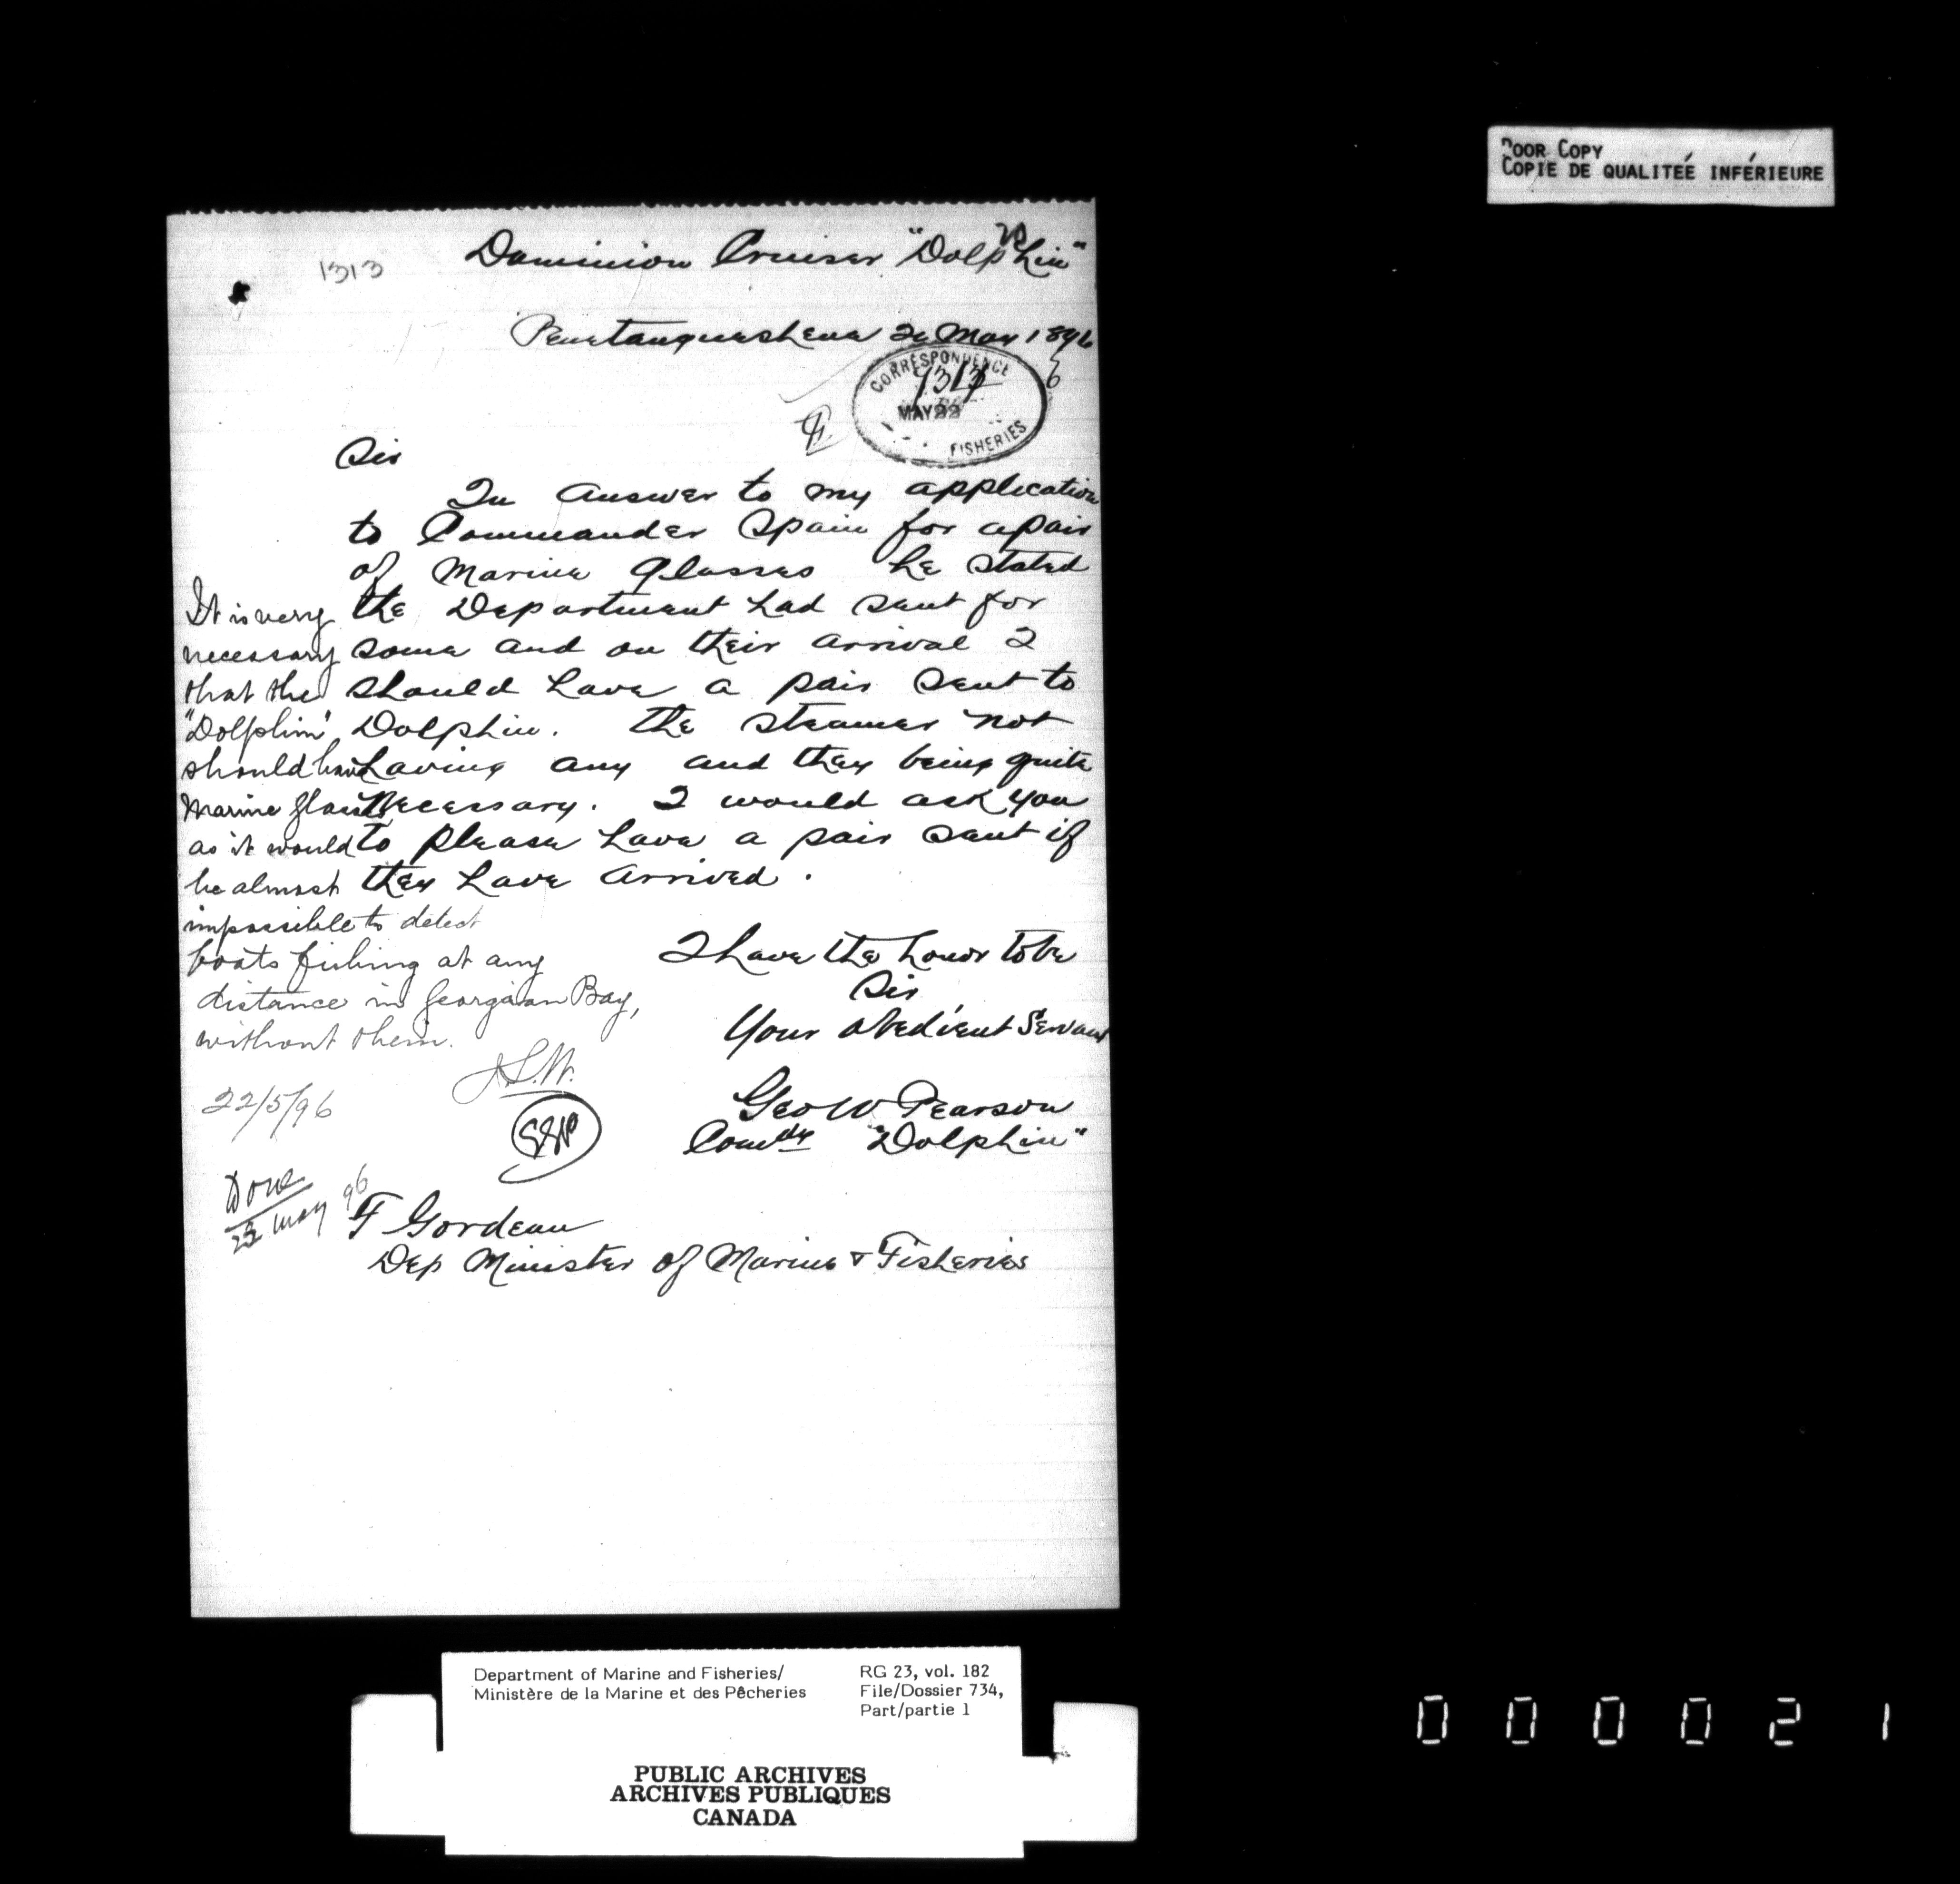 POOR COPY
COPIE DE QUALITEÉ INFÉRIEURE
1313
Dominion Cruiser "Dolphin"
Penetanguishene 20 May 1896
CORRESPONDENCE
1313
MAY 22
FISHERIES
Sir
In answer to my application
to Commander Spain for a pair
of Marine Glasses he stated
the Department had sent for
some and on their arrival I
should have a pair sent to
Dolphin. The steamer not
having any and they being quite
necessary. I would ask you
to please have a pair sent if
they have arrived.
I have the honor to be
Sir
Your obedient Servant
Geo W Pearson
Comdr "Dolphin"
It is very
necessary
that the
"Dolphin"
should have
marine glasses
as it would
be almost
impossible to detect
boats fishing at any
distance in Georgian Bay,
without them.
22/5/96
Done
23 May 96
F Gordeau
Dep Minister of Marine & Fisheries
Department of Marine and Fisheries/
Ministère de la Marine et des Pêcheries
RG 23, vol. 182
File/Dossier 734,
Part/partie 1
PUBLIC ARCHIVES
ARCHIVES PUBLIQUES
CANADA
0 0 0 0 2 1